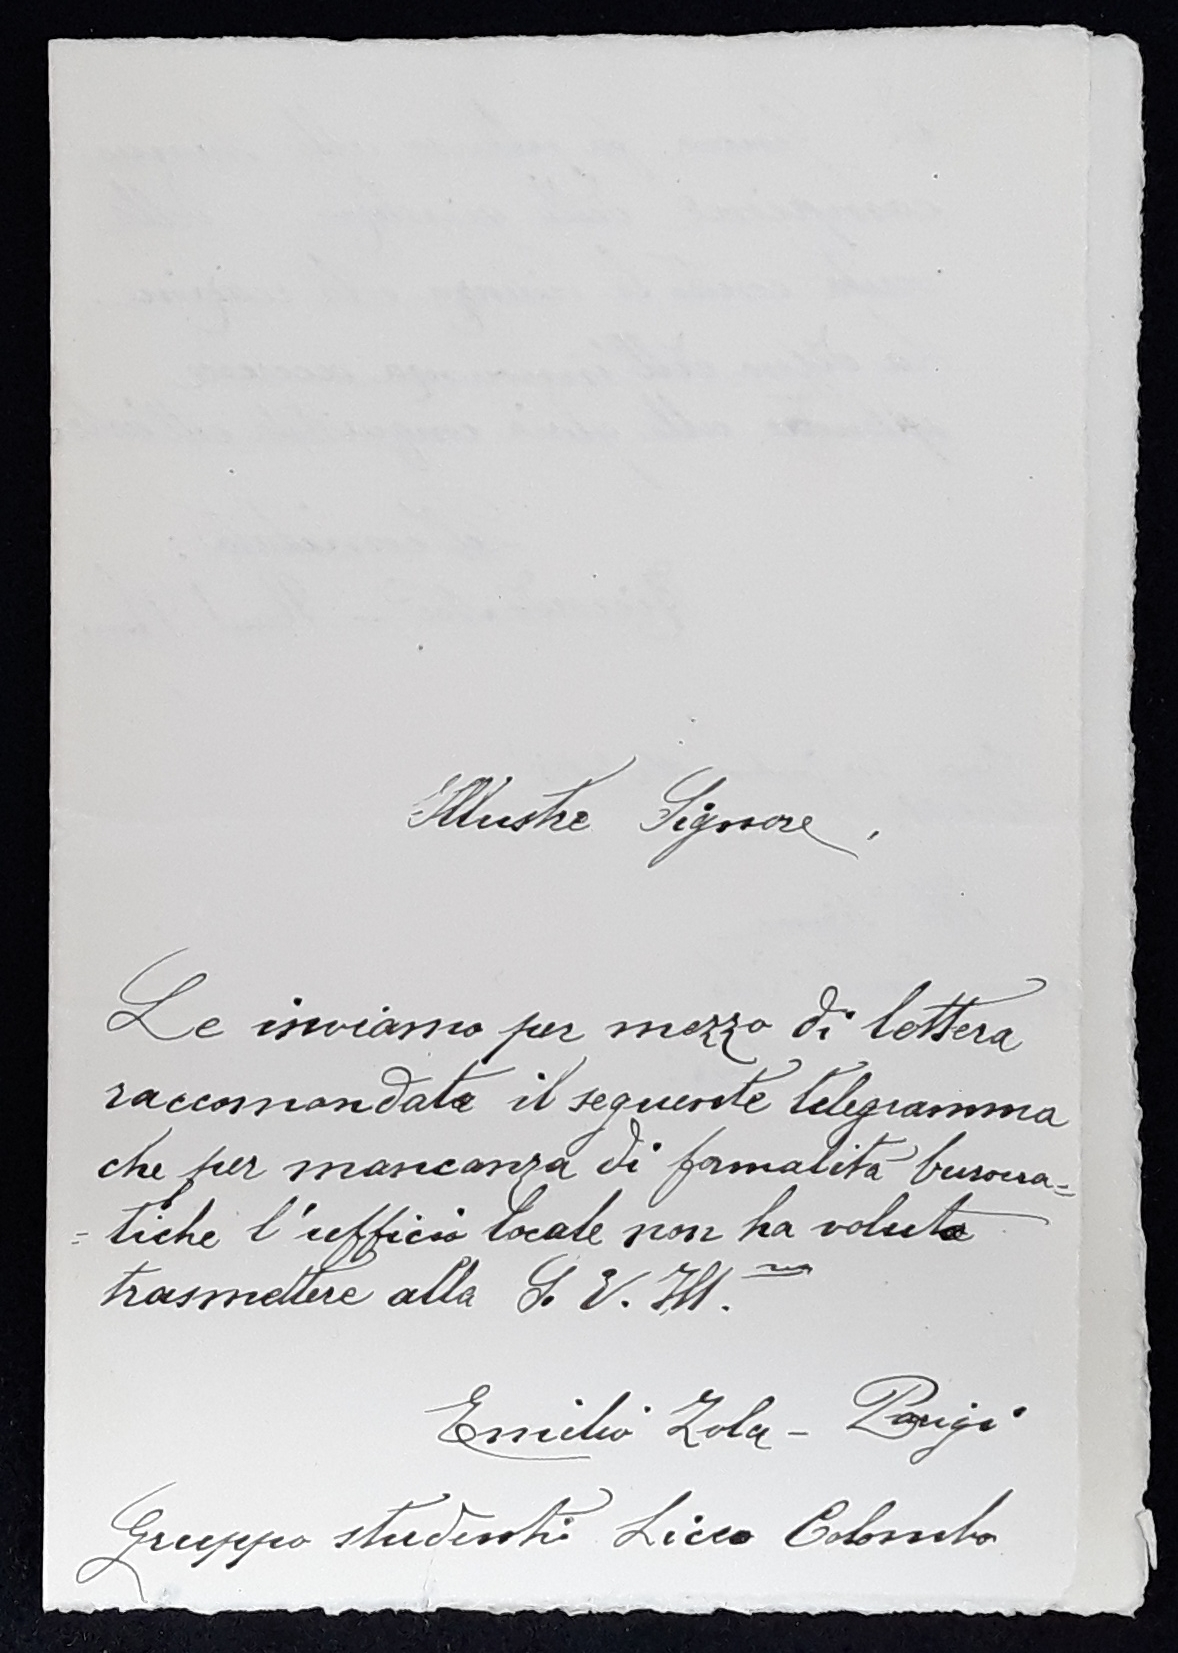 Illustre Signore,
Le inviamo per mezzo di lettera
raccomandata il seguente telegramma
che per mancanza di formalità burocra=
=tiche l'ufficio locale non ha voluto
trasmettere alla S. V. Ill.ma
Emilio Zola - Parigi
Gruppo studenti Liceo Colombo